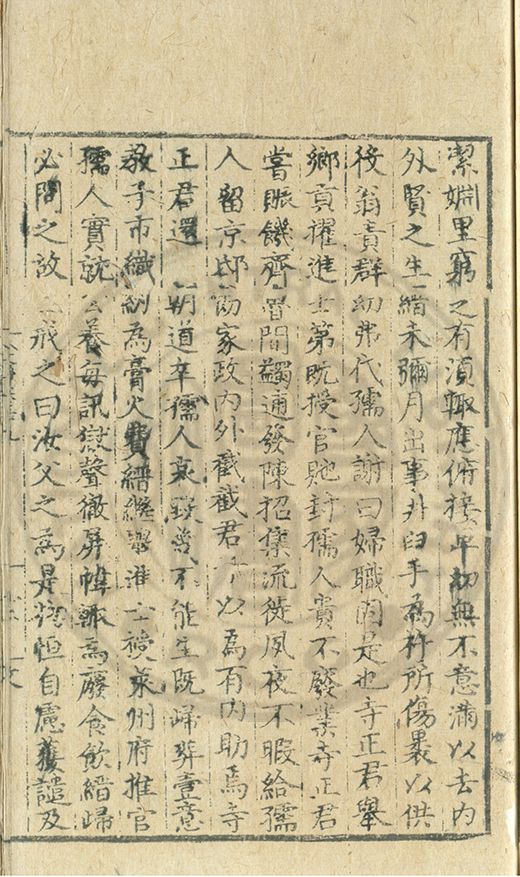 潔姻里窮乏有須輒應俯接卑幼無不意滿以去內
外賢之生縉未彌月出事井臼手為杵所傷裹以供
後翁責群幼弗代孺人謝曰婦職固是也寺正君舉
鄉貢擢進士第既授官貤封孺人貴不廢業寺正君
嘗賑饑齊魯間蠲通發陳招集流徙夙夜不暇給孺
人留京邸勷家政內外截截君子以為有內助焉寺
正君還朝道卒孺人哀毀幾不能生既歸葬壹意
教子市織紝為膏火費縉繼舉進士授萊州府推官
孺人實就養每訊獄聲徹屏幃輒為廢食飲縉歸
必問之故戒之曰汝父之為是官恒自慮獲譴及